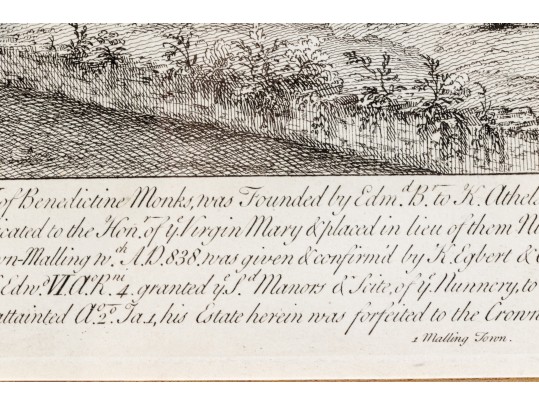 of Benedictine Monks, was Founded by Edm.d B.r to K. Athels
icated to the Hon.r of ye Virgin Mary & placed in lieu of them Nu
n-Malling w.ch A.D. 838. was given & confirm'd by K. Egbert &
Edw.o VI. A.o R.ni 4. granted ye S.d Manors & Scite, of ye Nunnery, to
attainted A.o 2.o Ja. 1, his Estate herein was forfeited to the Crown
1 Malling Town.